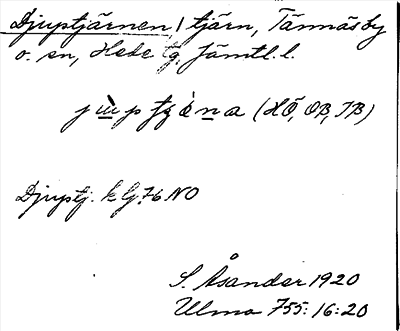 Djuptjärnen, tjärn, Tännäs by
o. sn, Hede tg. Jämtl. l.
(HÖ, OB, JB)
Djuptj. k Gf. 76 NO
S. Åsander 1920
Ulma 755:16:20